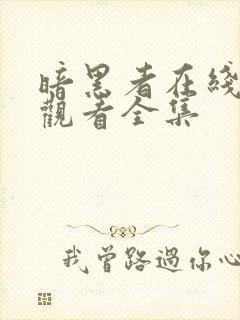 暗黑者在綫
觀看全集
我曾路過你心